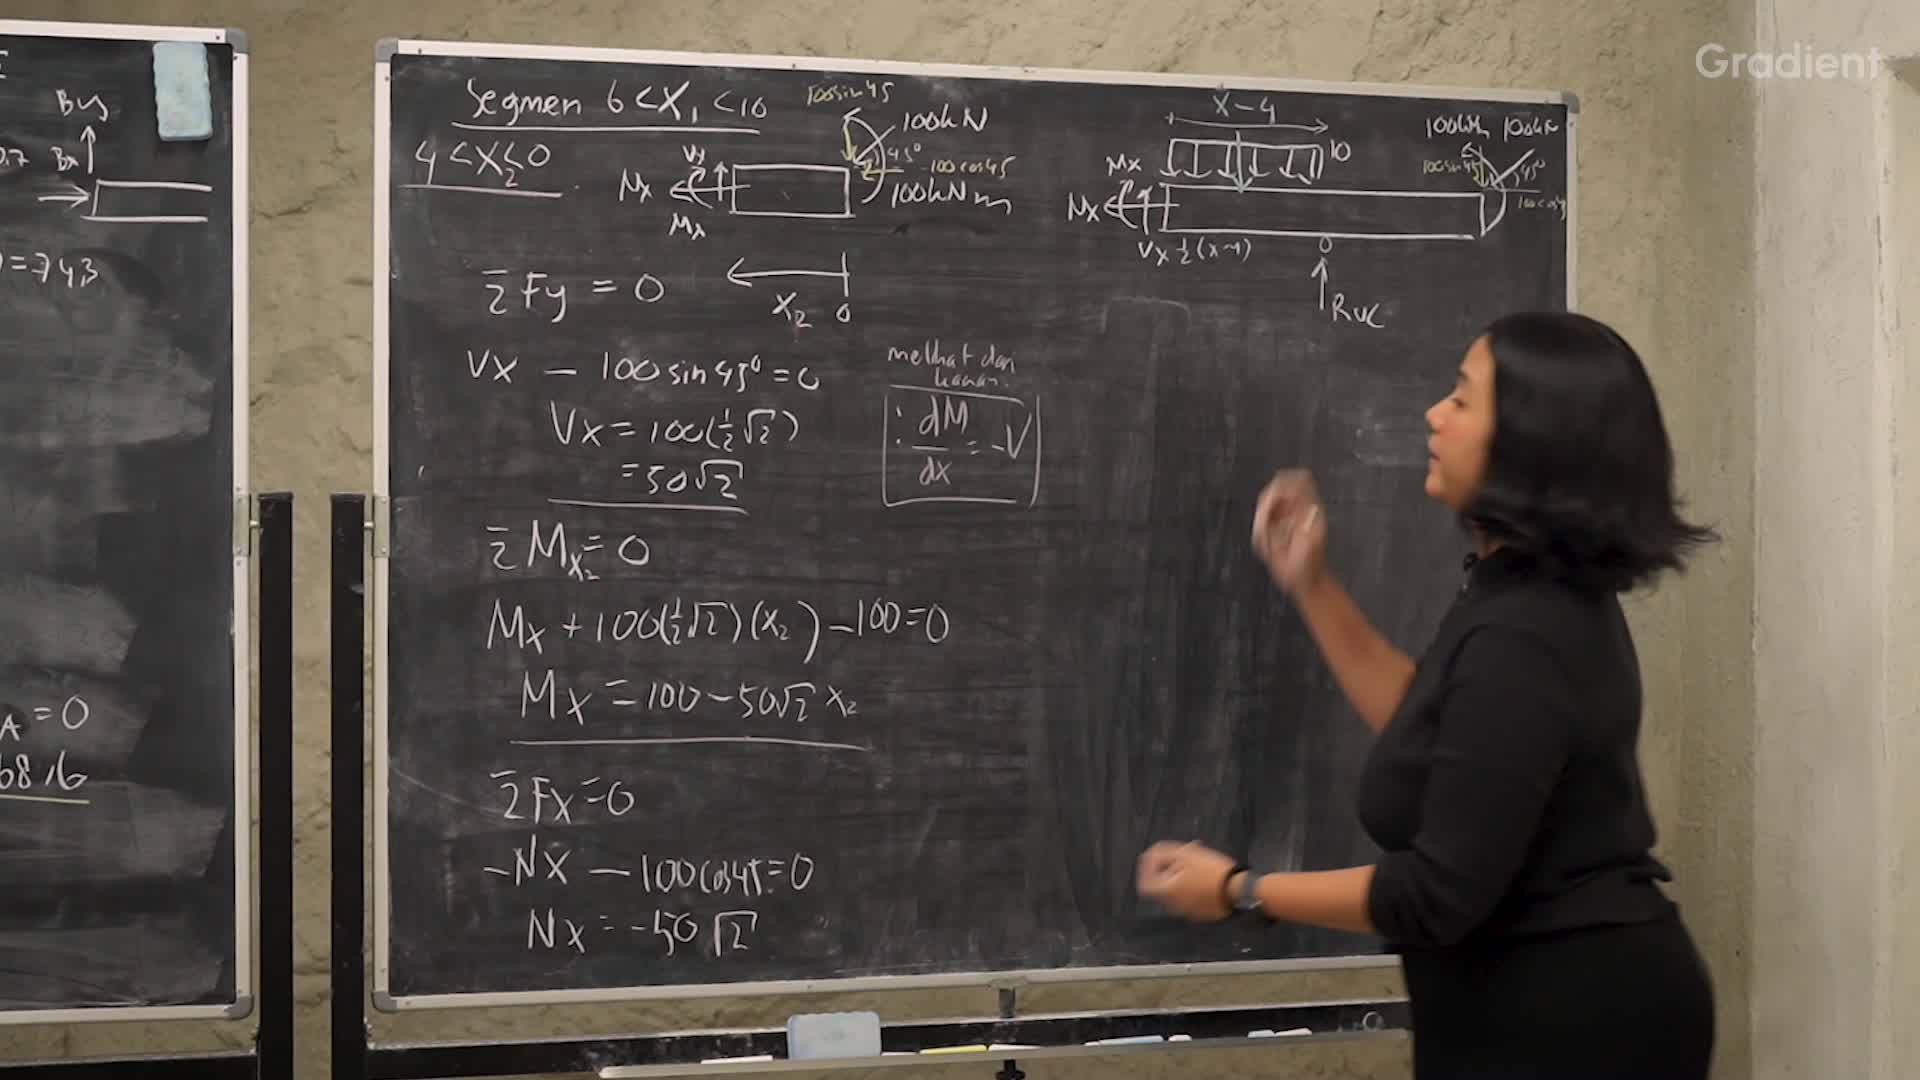 Gradient
By
Bx
0.7
=743
A = 0
6816
Segmen 6 < X₁ < 10
4 < X₂ < 0
100 sin 45
100kN
45°
100 cos 45
100kNm
Vx
Nx
Mx
X₂ 0
ΣFy = 0
Vx - 100 sin 45° = 0
Vx = 100(½√2)
= 50√2
melihat dari
kanan.
: dM/dx = -V
ΣMx₂ = 0
Mx + 100(½√2)(x₂) - 100 = 0
Mx = 100 - 50√2 x₂
ΣFx = 0
-Nx - 100 cos 45 = 0
Nx = -50√2
X-4
10
Mx
Nx
Vx ½(x-4)
0
Rvc
100kN
100 sin 45
45°
100 cos 4